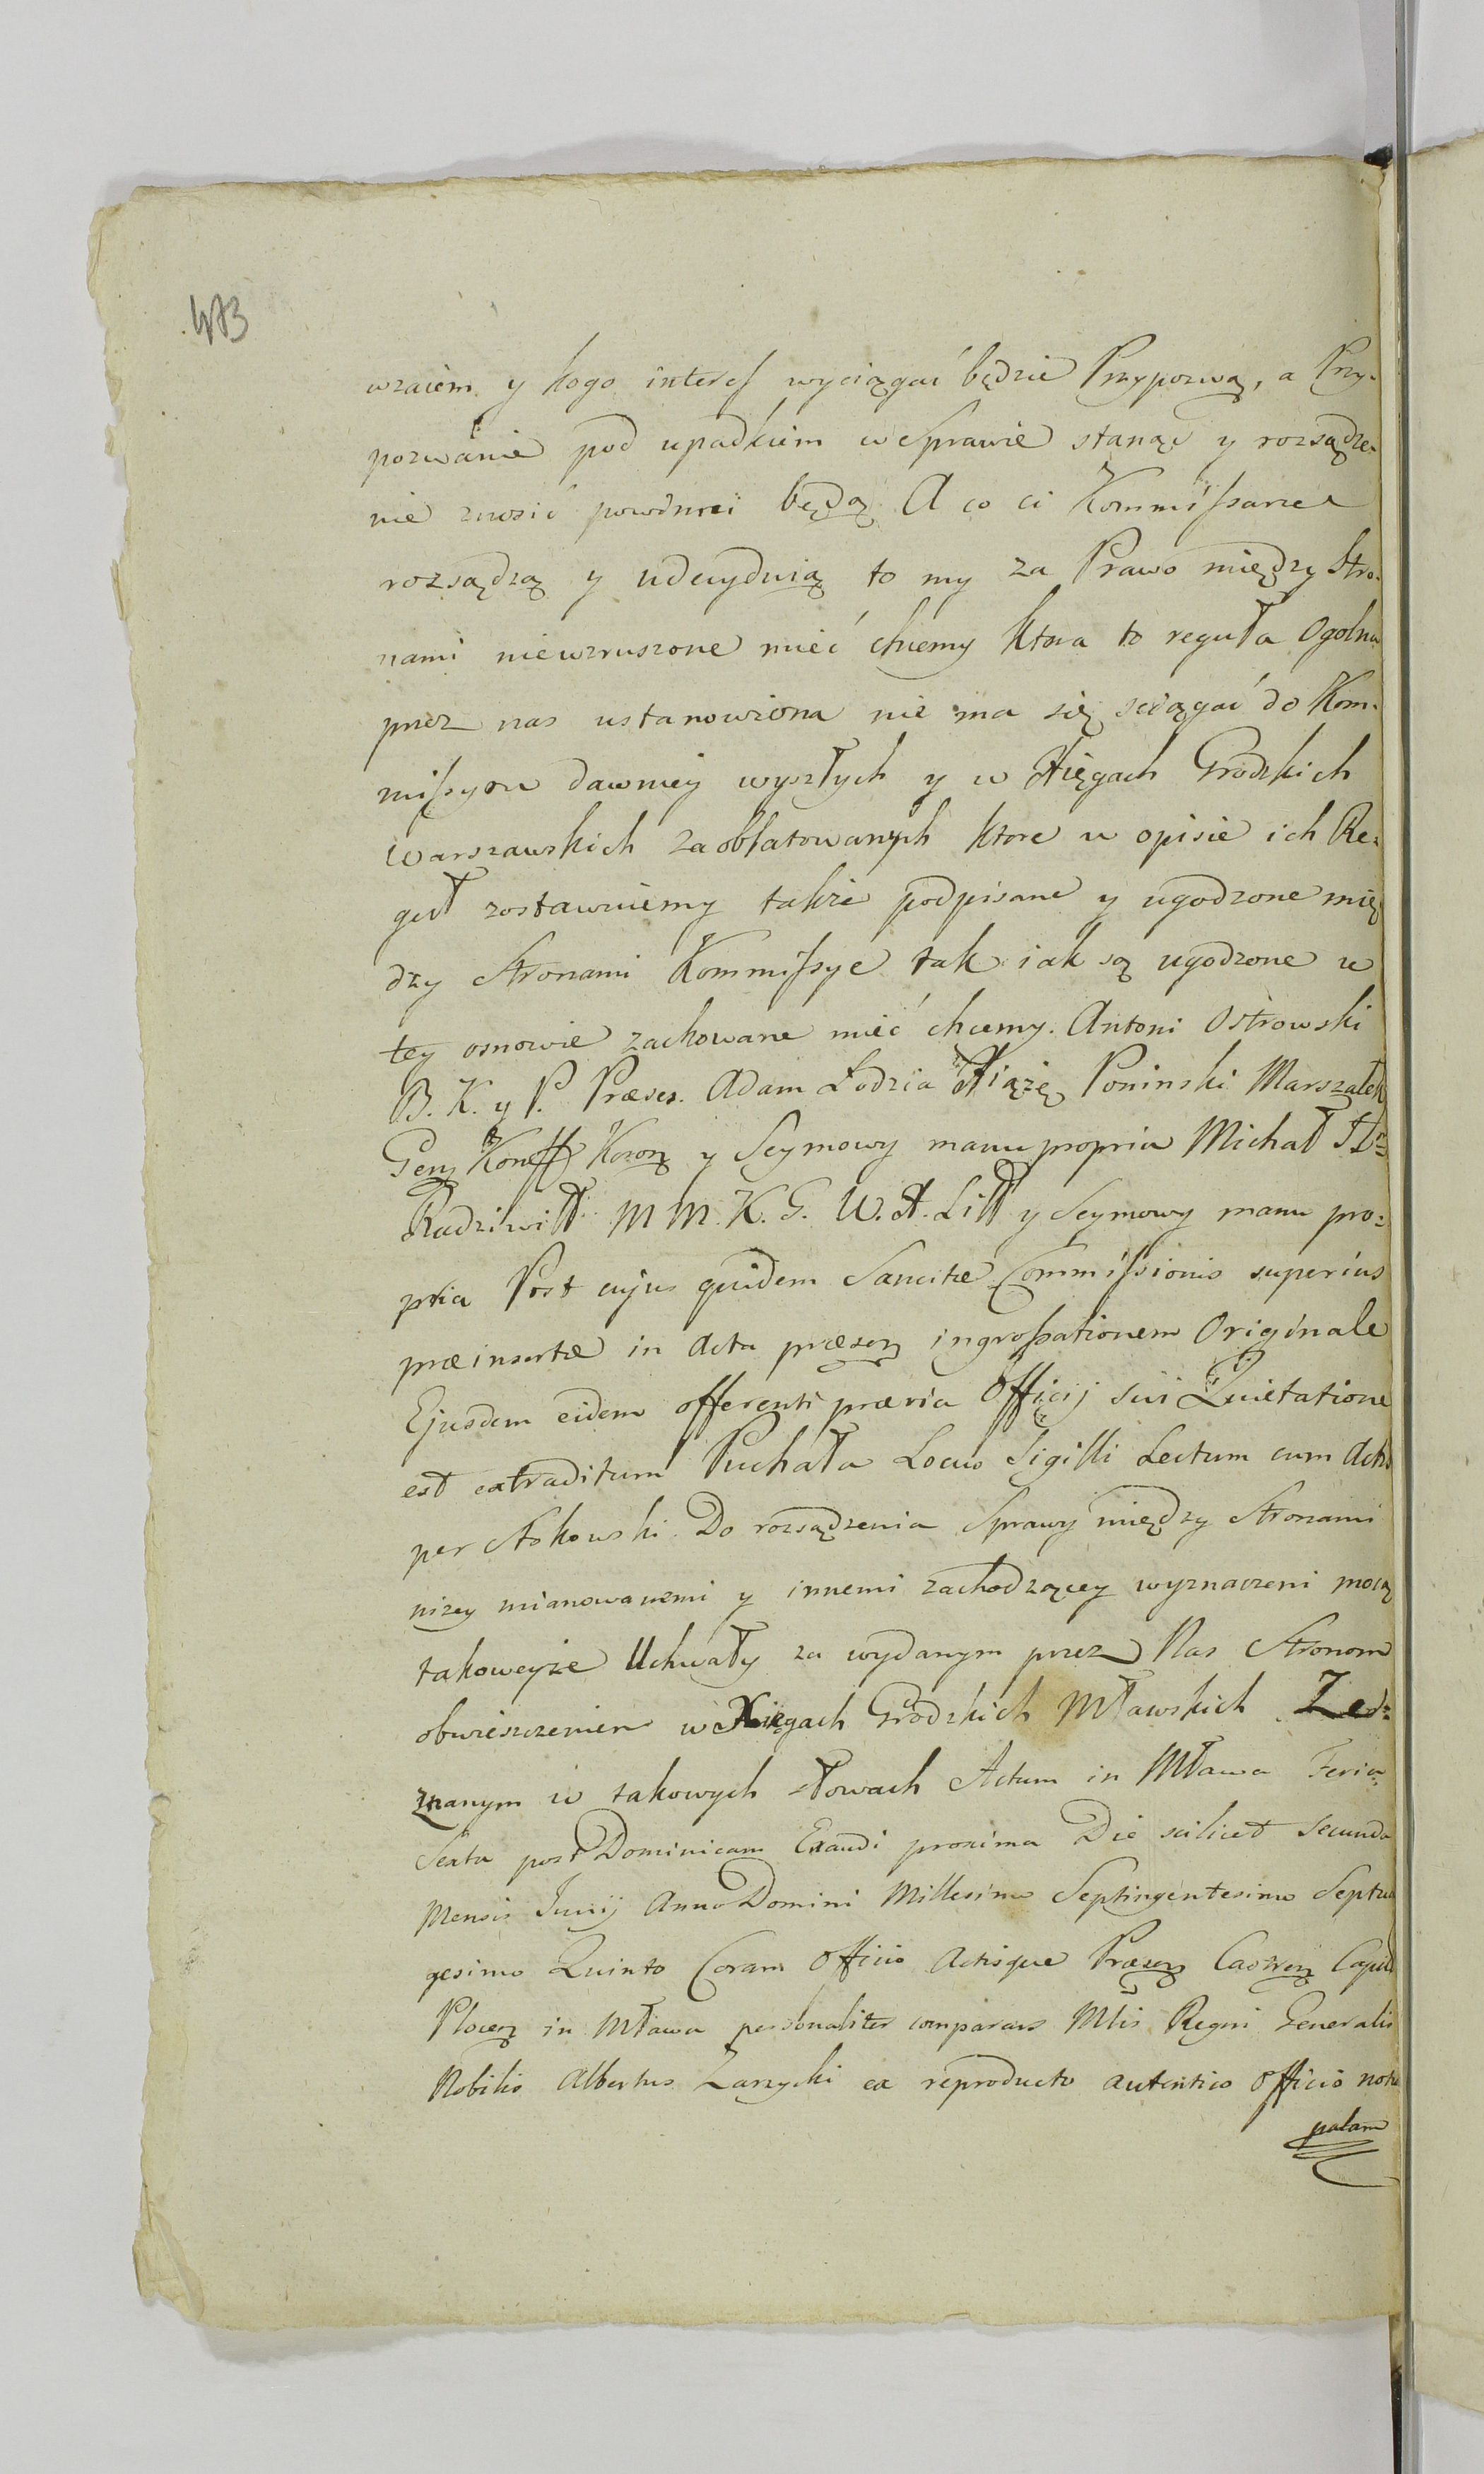 473
wzaiem y kogo interes wyciągać będzie Przypozwą, a Przy-
pozwanie pod upadkiem w Sprawie stanąć y rozsądze-
nie znosić powinni będą A co ci Kommissarze
rozsądzą y udecyduią to my za Prawo między Stro-
nami niewzruszone mieć chcemy ktora to reguła Ogolna
przez nas ustanowiona nie ma się sciągać do Kom-
missyow dawniey wyszłych y w Xięgach Grodzkich
Warszawskich zaoblatowanych ktore w opisie ich Re-
guł zostawuiemy także podpisane y ugodzone mię
dzy Stronami Kommissye tak iak są ugodzone w
tey osnowie zachowane mieć chcemy. Antoni Ostrowski
B. K. y P. Præses. Adam Łodzia Xiąże Poninski Marszałek
Gen Konff Koron y Seymowy manu propria Michał X
Radziwiłł M M. K. G. W. X. Litt y Seymowy manu pro-
pria Post cujus quidem Sancitæ Commissionis superius
præinsertæ in Acta præsen ingrossationem Originale
Ejusdem eidem offerenti prævia Officij sui Quietatione
est extraditum Puchała Locus Sigilli Lectum cum Actis
per Do rozsądzenia Sprawy między Stronami
niżey mianowanemi y innemi zachodzącey wyznaczeni mocą
takoweyże Uchwały za wydanym przez Nas Stronom
obwieszczeniem w Xięgach Grodzkich Mławskich Zed-
znanym w takowych słowach Actum in Mława Feria
Sexta post Dominicam Exaudi proxima Die scilicet Secunda
Mensis Junij Anno Domini Millesimo Septingentesimo Septua
gesimo Quinto Coram Officio Actisque Præsen Castren Capit
Plocen in Mława personaliter comparens Mlis Regni Generalis
Nobilis Albertus Zarzycki ex reproducto autentico Officio notu
palam